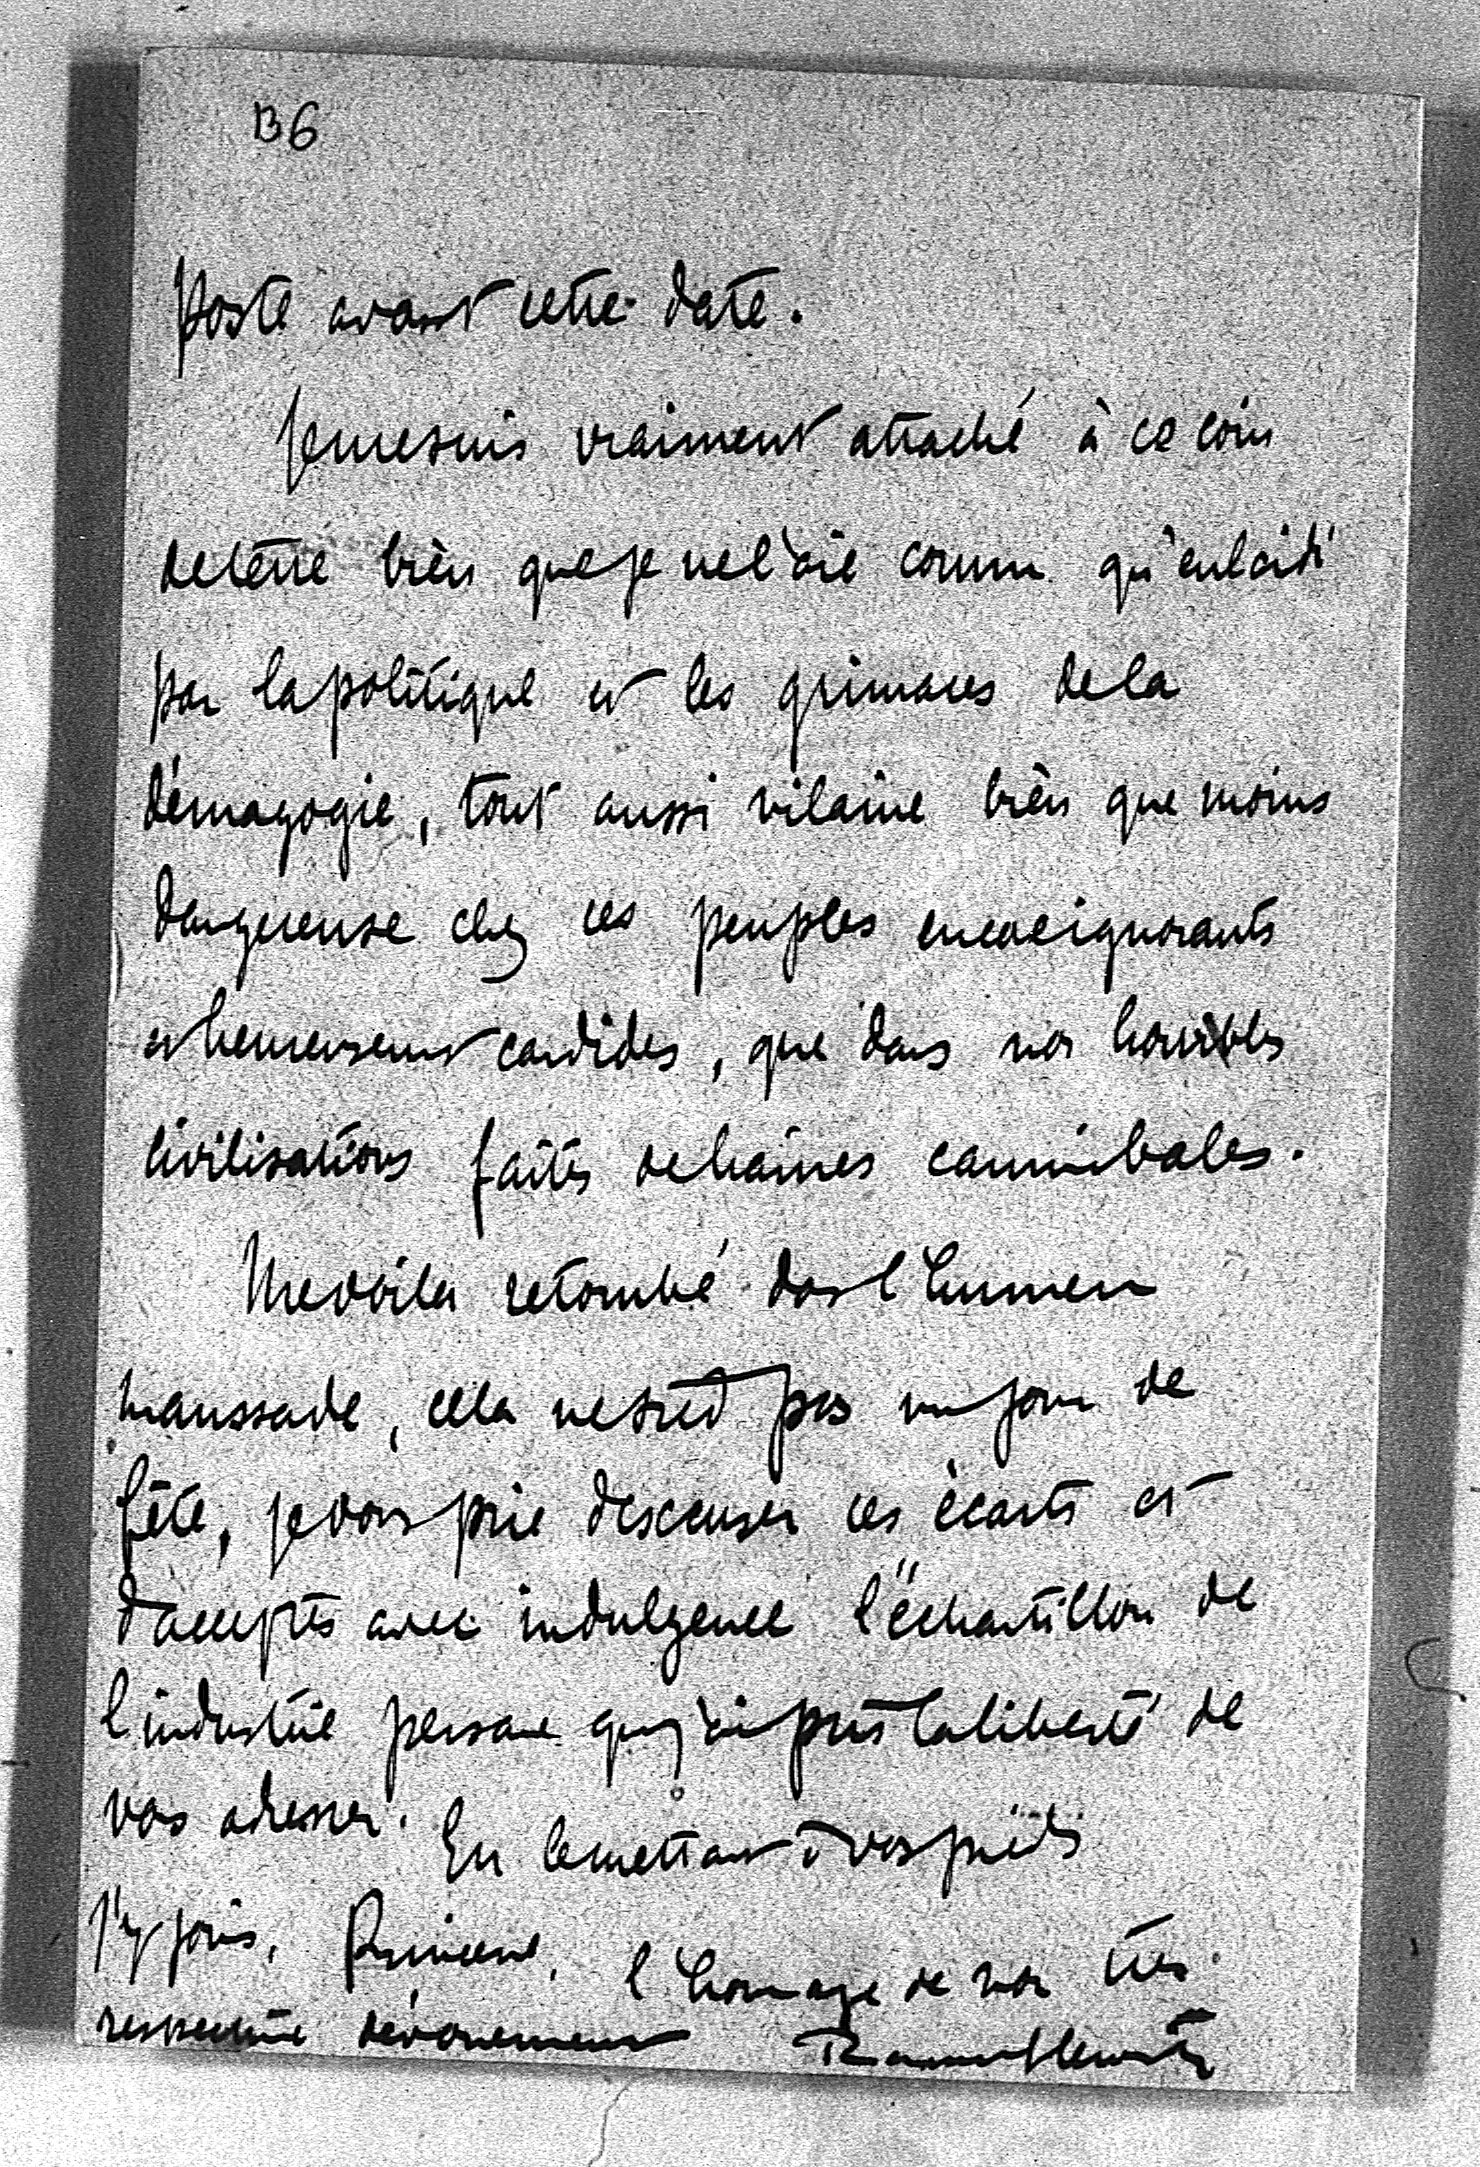 B6
poste avant cette date.
Je me suis vraiment attaché à ce coin
de terre bien que je ne l'aie connu qu'enlaidi
par la politique et les grimaces de la
démagogie, tout aussi vilaine bien que moins
dangereuse chez ces peuples encore ignorants
et heureusement candides, que dans nos horribles
civilisations faites de haines cannibales.
Me voila retombé dans l'humeur
maussade, cela ne sied pas un jour de
fête, je vous prie d'excuser ces écarts et
d'accepter avec indulgence l'échantillon de
l'industrie persane que j'ai pris la liberté de
vous adresser. En le mettant à vos pieds
j'y joins, Princesse, l'hommage de mon très
respectueux dévouement